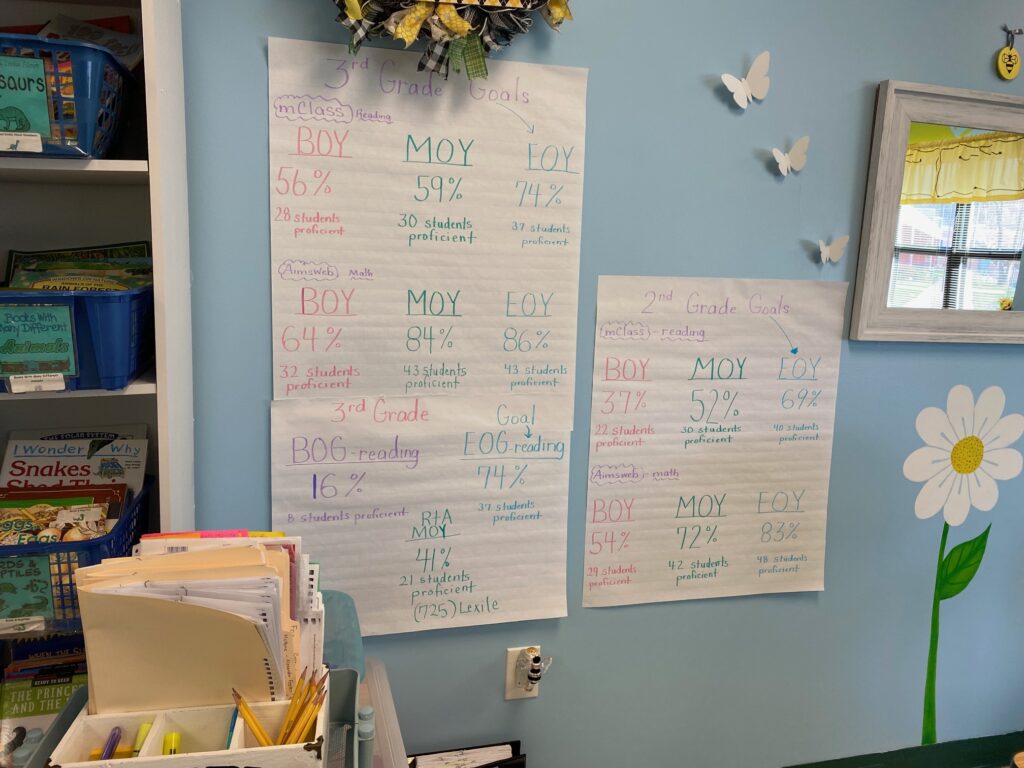 3rd Grade Goals
mClass Reading
BOY MOY EOY
56% 59% 74%
28 students proficient
30 students proficient
37 students proficient
AimsWeb Math
BOY MOY EOY
64% 84% 86%
32 students proficient
43 students proficient
43 students proficient
3rd Grade Goal
BOG-reading EOG-reading
16% 74%
8 students proficient
37 students proficient
RtA
MOY
41%
21 students
proficient
(725) Lexile
2nd Grade Goals
mClass - reading
BOY MOY EOY
37% 52% 69%
22 students proficient
30 students proficient
40 students proficient
Aimsweb - math
BOY MOY EOY
54% 72% 83%
29 students proficient
42 students proficient
48 students proficient
saurs
RAIN FOREST
Books With
Many Different
Animals
SOLAR SYSTEM
I Wonder Why
Snakes
Shed Their
Eggs
REPTILES
READY TO READ
THE PRINCE